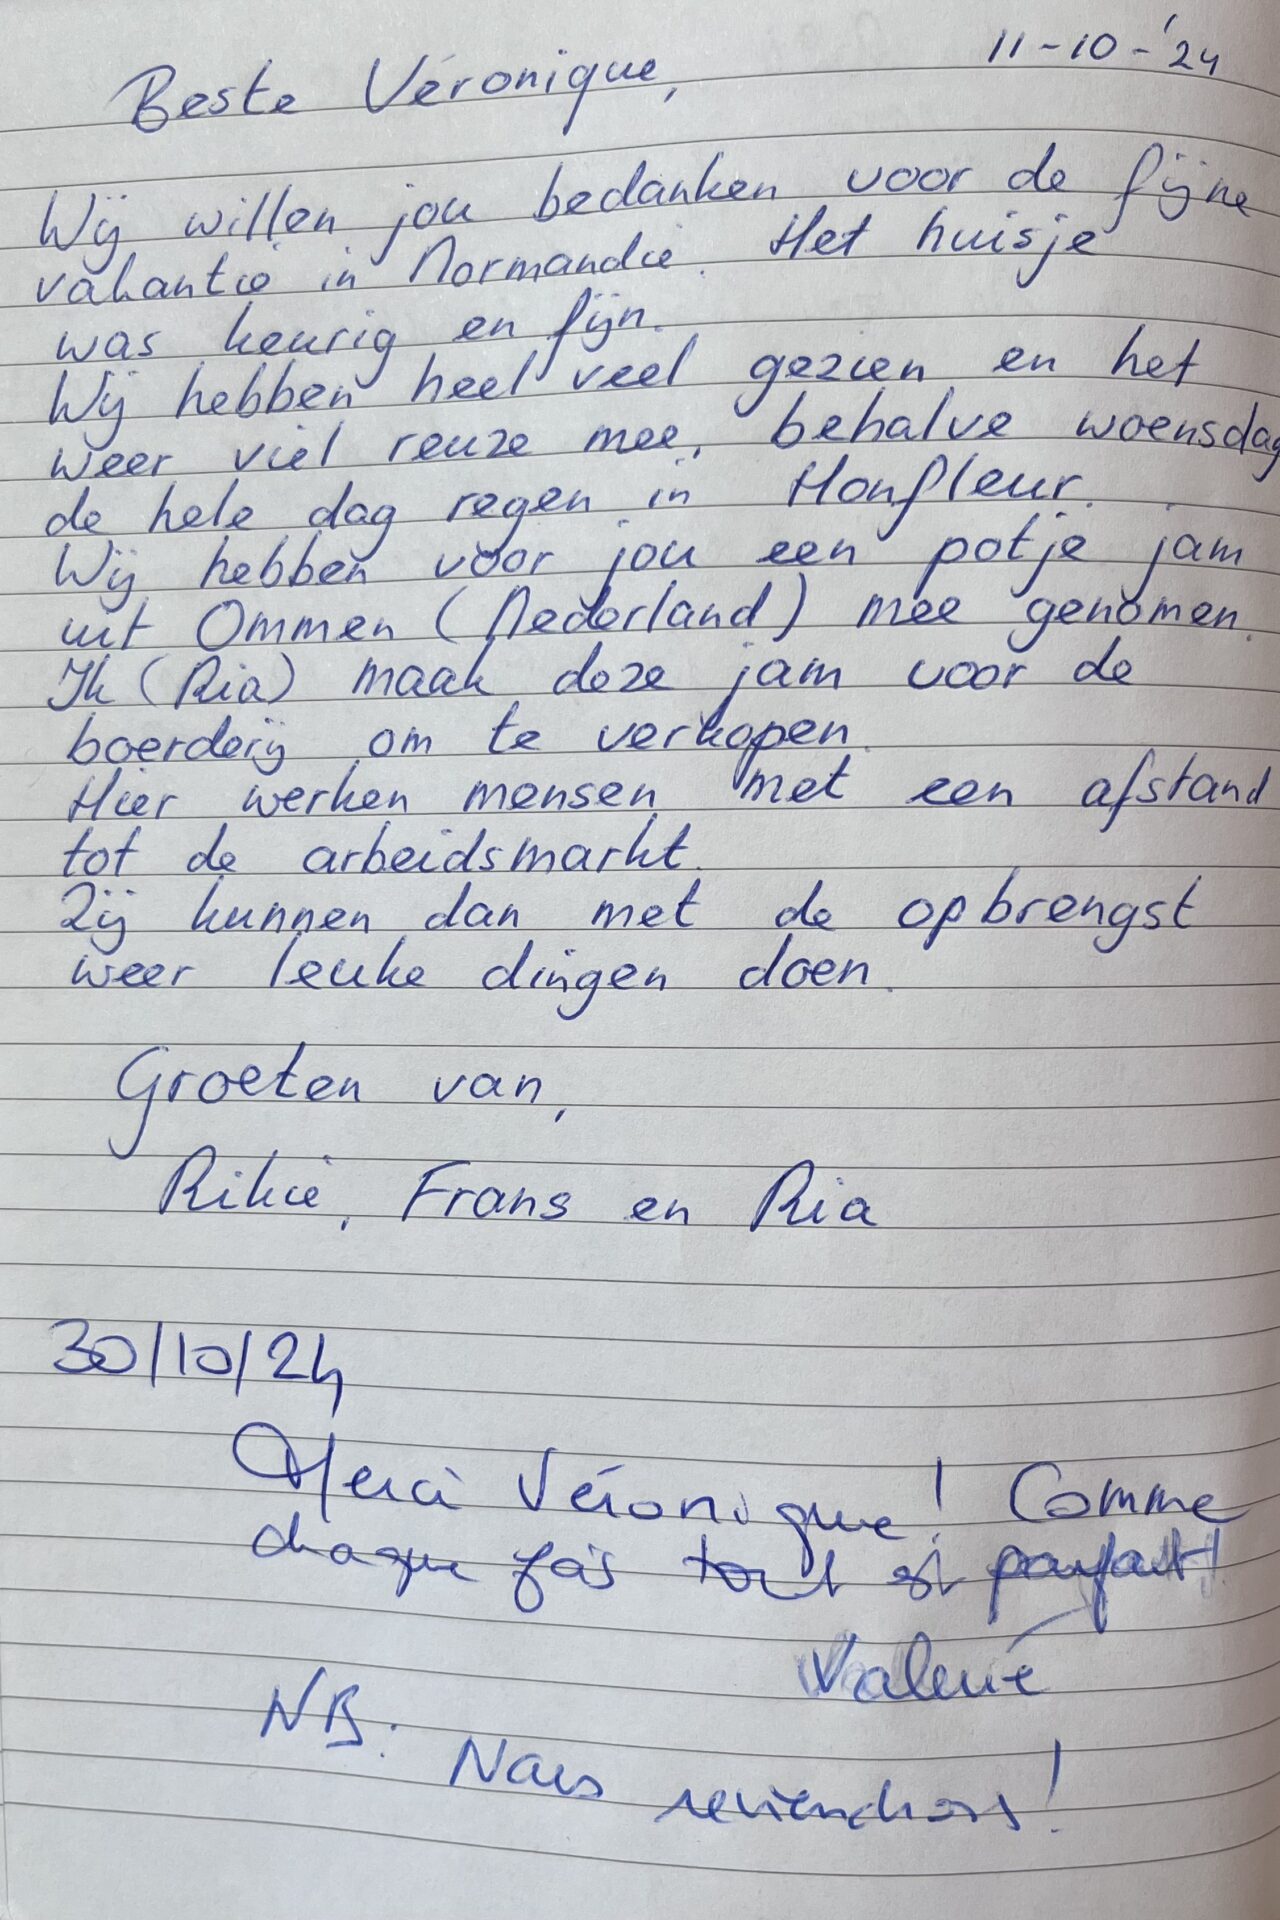 11-10-'24
Beste Véronique,
Wij willen jou bedanken voor de fijne
vakantie in Normandië. Het huisje
was keurig en fijn.
Wij hebben heel veel gezien en het
weer viel reuze mee, behalve woensdag
de hele dag regen in Honfleur.
Wij hebben voor jou een potje jam
uit Ommen (Nederland) mee genomen.
Ik (Ria) maak deze jam voor de
boerderij om te verkopen.
Hier werken mensen met een afstand
tot de arbeidsmarkt.
Zij kunnen dan met de opbrengst
weer leuke dingen doen.
Groeten van,
Rikie, Frans en Ria
30/10/24
Merci Véronique! Comme
chaque fois tout est parfait!
Valerie
NB: Nous reviendrons!